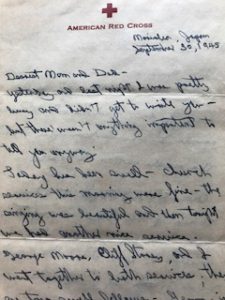 AMERICAN RED CROSS
Japan
September 30, 1945
Dearest Mom and Dad -
Yesterday and last night I was pretty
busy and didn't get to write you -
but there wasn't anything important to
tell you anyway.
Today has been swell - church
services this morning were fine - the
singing was beautiful and then tonight
we had another nice service.
George Moore, Cliff and I
went together to both services, they
are two swell fellows